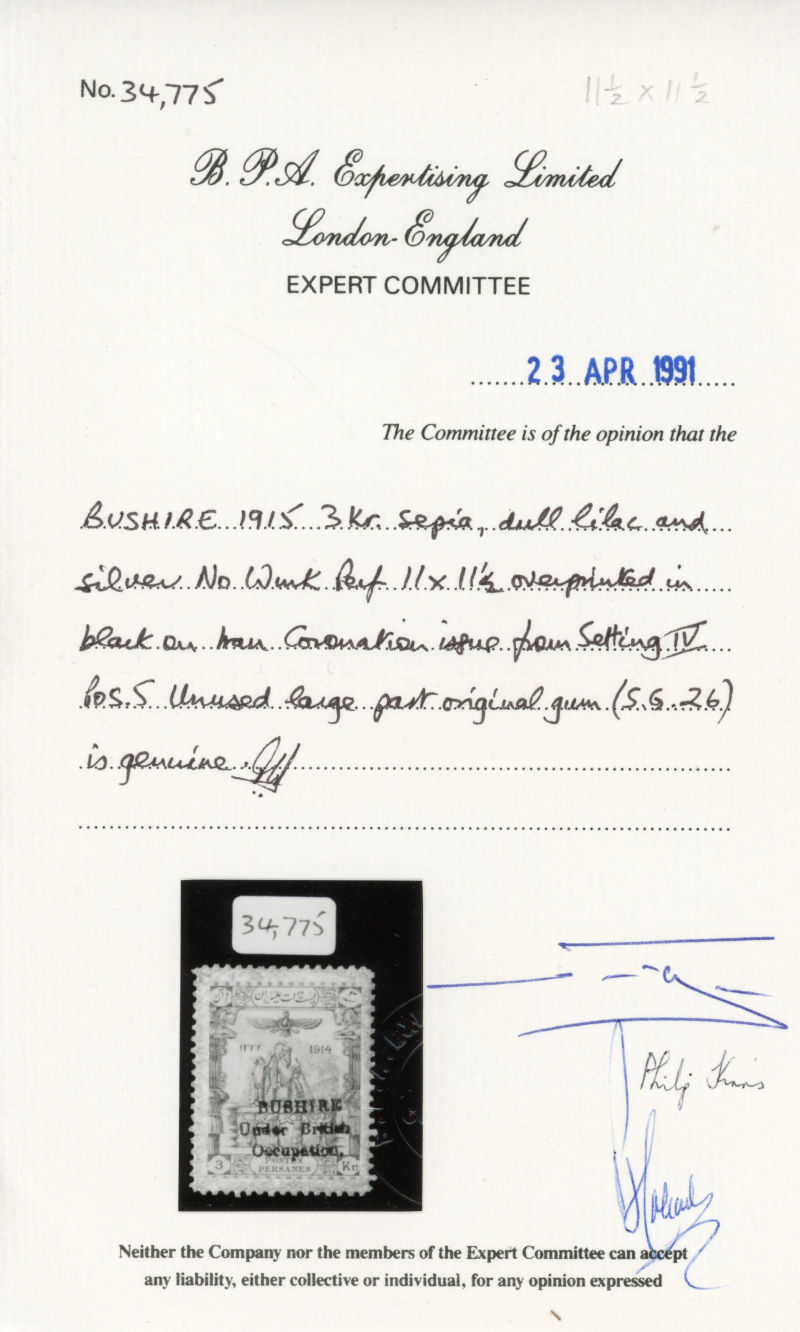 No. 34,775
11½ x 11½
B. P. A. Expertising Limited
London - England
EXPERT COMMITTEE
23 APR 1991
The Committee is of the opinion that the
BUSHIRE 1915 3 Kr. sepia, dull lilac and
silver No Wmk Perf 11 x 11½ overprinted in
black on Iran Coronation issue from Setting IV
Pos. 5 Unused large part original gum (S.G. 26)
is genuine.
34,775
۱۳۳۲ 1914
BUSHIRE
Under British
Occupation.
POSTES
3 PERSANES Kr.
Philip
Neither the Company nor the members of the Expert Committee can accept
any liability, either collective or individual, for any opinion expressed